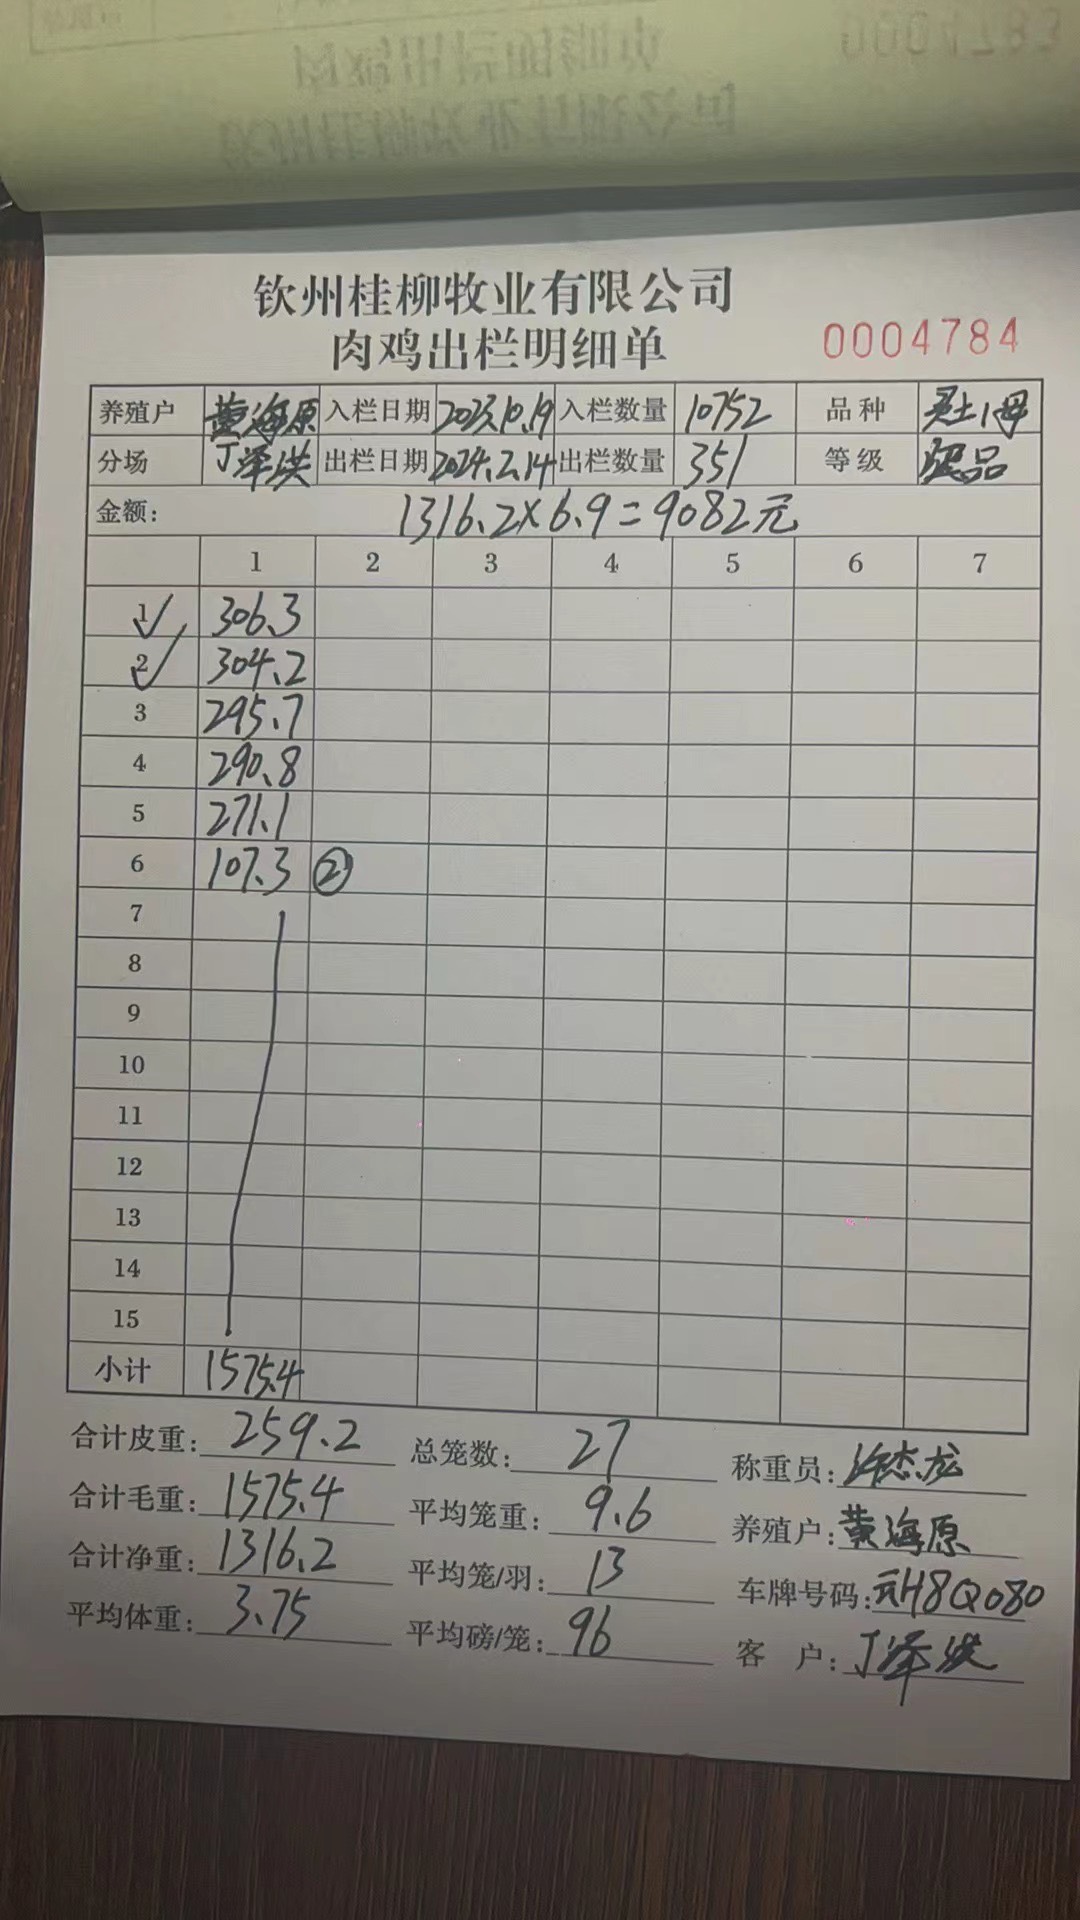 0004783
钦州桂柳牧业有限公司
肉鸡出栏明细单
0004784
养殖户 黄海原 入栏日期 2023.10.19 入栏数量 10752 品种
分场 丁泽洪 出栏日期 2024.2.14 出栏数量 351 等级
金额: 1316.2×6.9=9082元
1 2 3 4 5 6 7
1 306.3
2 304.2
3 295.7
4 290.8
5 271.1
6 107.3 ②
7
8
9
10
11
12
13
14
15
小计 1575.4
合计皮重: 259.2 总笼数: 27 称重员: 许杰龙
合计毛重: 1575.4 平均笼重: 9.6 养殖户: 黄海原
合计净重: 1316.2 平均笼/羽: 13 车牌号码: H8Q080
平均体重: 3.75 平均磅/笼: 96 客 户: 丁泽洪